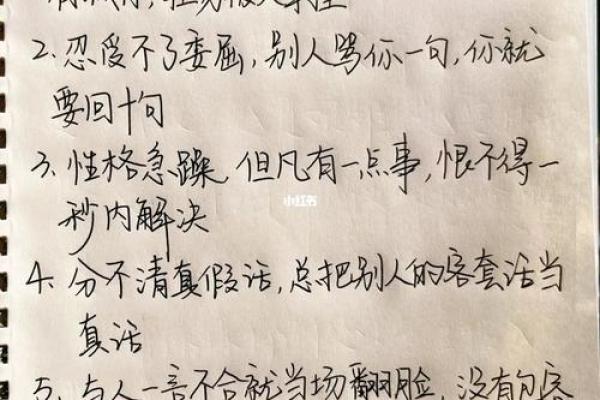 2.忍受不了委屈,别人骂你一句,你就
要回十句
3、性格急躁 但凡有一点事,恨不得一
秒内解决
小红书
4、分不清真假话,总把别人的客套话当
真话
5、与人一言不合就当场翻脸,没有包容